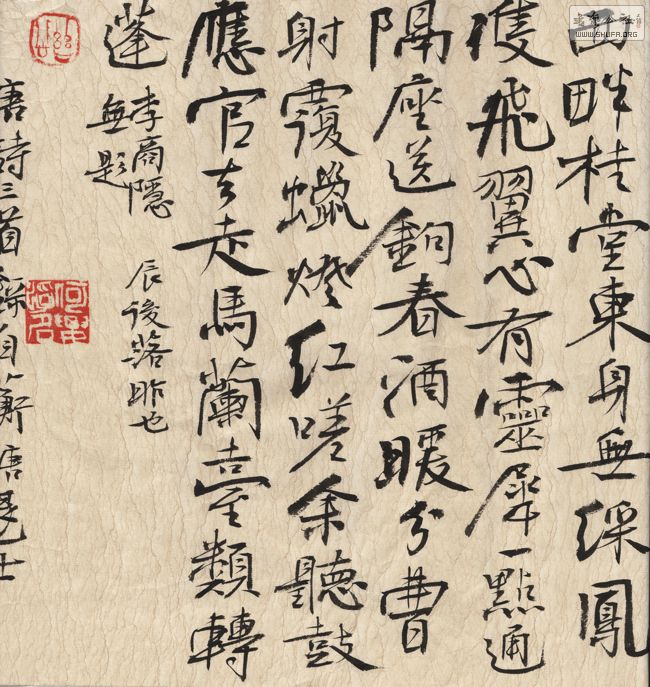 西畔桂堂東身無綵鳳
隻飛翼心有靈犀一點通
隔座送鉤春酒暖分曹
射覆蠟燈紅嗟余聽鼓
應官去走馬蘭臺類轉
蓬
李商隱
無題
辰後落昨也
唐詩三首錄自蘅塘退士
WWW.SHUFA.ORG